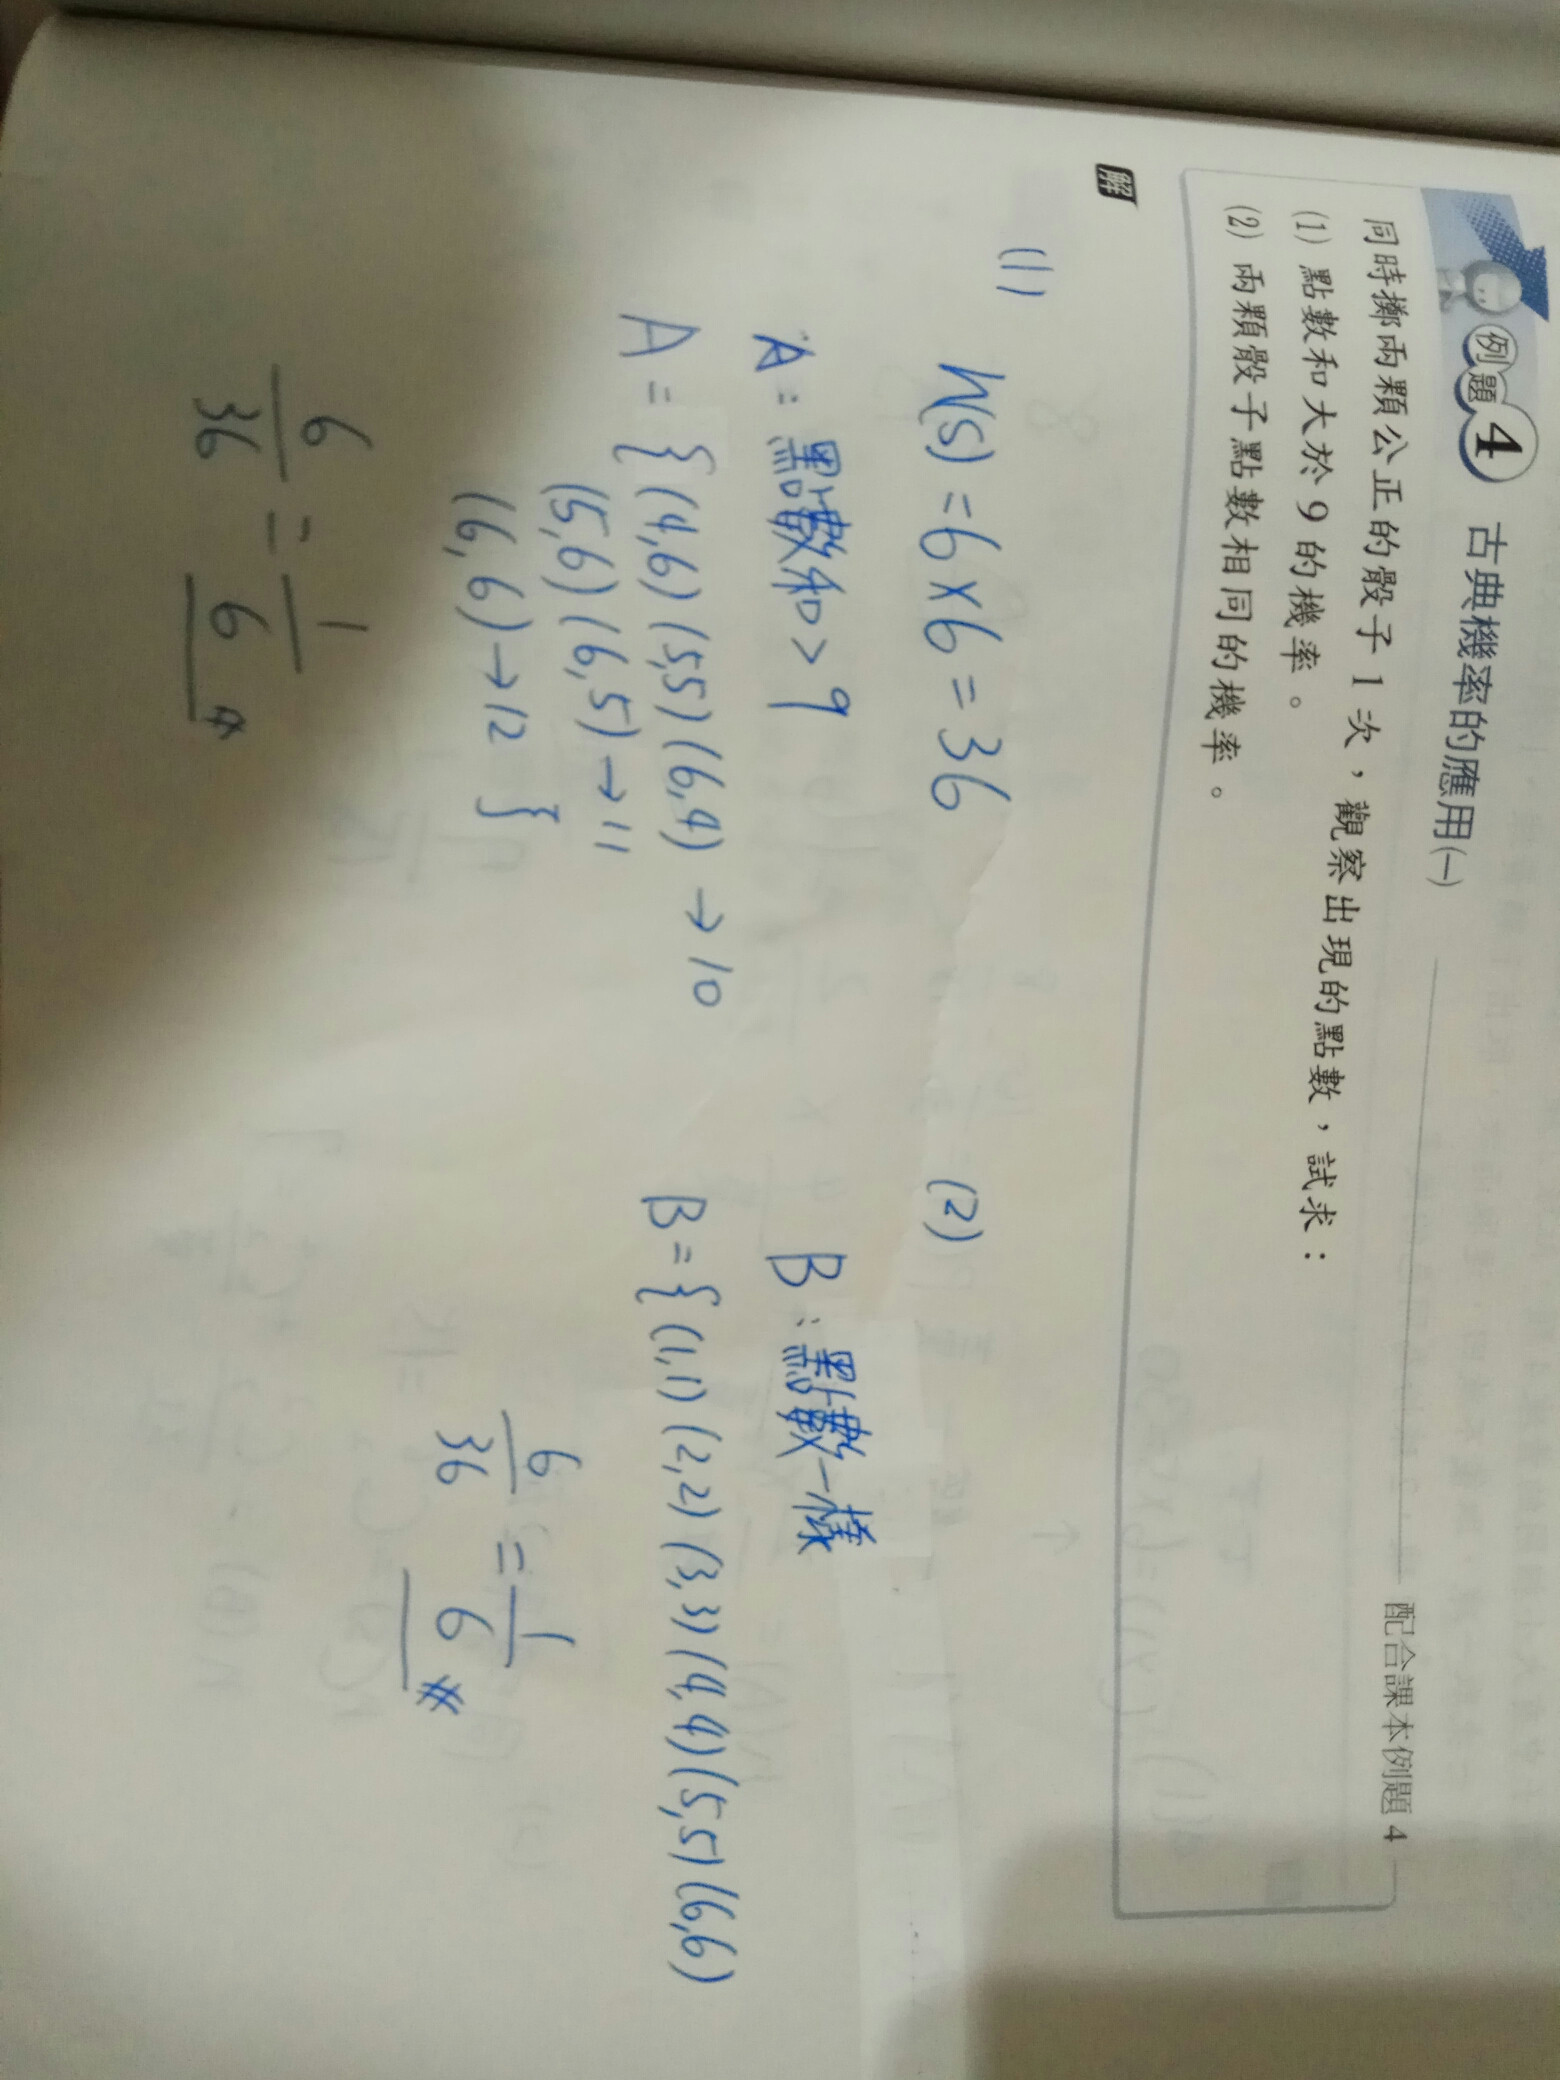 例題 4 古典機率的應用(一) 配合課本例題 4
同時擲兩顆公正的骰子 1 次，觀察出現的點數，試求：
(1) 點數和大於 9 的機率。
(2) 兩顆骰子點數相同的機率。
解
(1)
n(s) = 6 × 6 = 36
A : 點數和 > 9
A = { (4,6) (5,5) (6,4) → 10
(5,6) (6,5) → 11
(6,6) → 12 }
6/36 = 1/6 #
(2)
B : 點數一樣
B = { (1,1) (2,2) (3,3) (4,4) (5,5) (6,6)
6/36 = 1/6 #